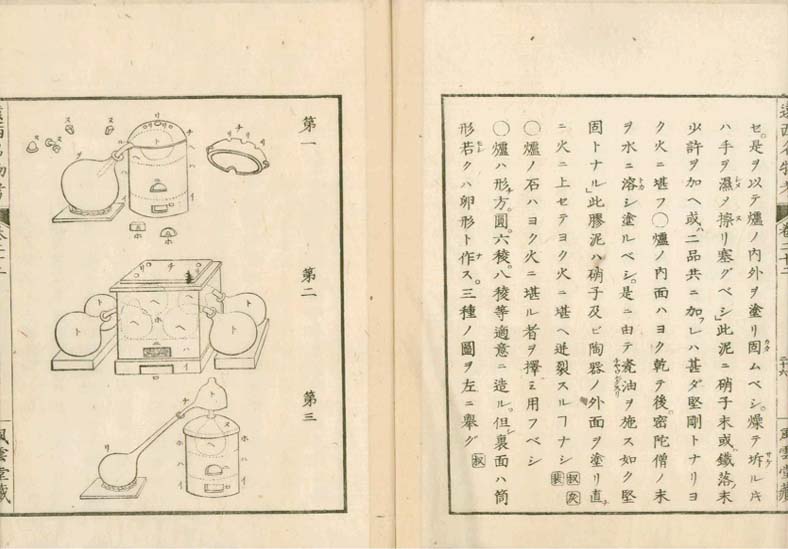 セ。是ヲ以テ爐ノ内外ヲ塗リ固ムベシ。燥テ坼ル片
ハ手ヲ濕メ擦リ塞グベシ」此泥ニ硝子末或鐵落末
少許ヲ加ヘ或二品共ニ加フレハ甚ダ堅剛トナリヨ
ク火ニ堪フ〇爐ノ内面ハヨク乾テ後。密陀僧ノ末
ヲ水ニ溶シ塗ルベシ。是ニ由テ瓷油ヲ施ス如ク堅
固トナル」此膠泥ハ硝子及ビ陶器ノ外面ヲ塗リ直
ニ火ニ上セテヨク火ニ堪ヘ迸裂スルヿナシ
〇爐ノ石ハヨク火ニ堪ル者ヲ擇ミ用フベシ
〇爐ハ形方。圓。六稜。八稜等適意ニ造ル。但裏面ハ筒
形若クハ卵形ト作ス。三種ノ圖ヲ左ニ擧グ 叔
風雲堂藏
第一
第二
第三
風雲堂藏